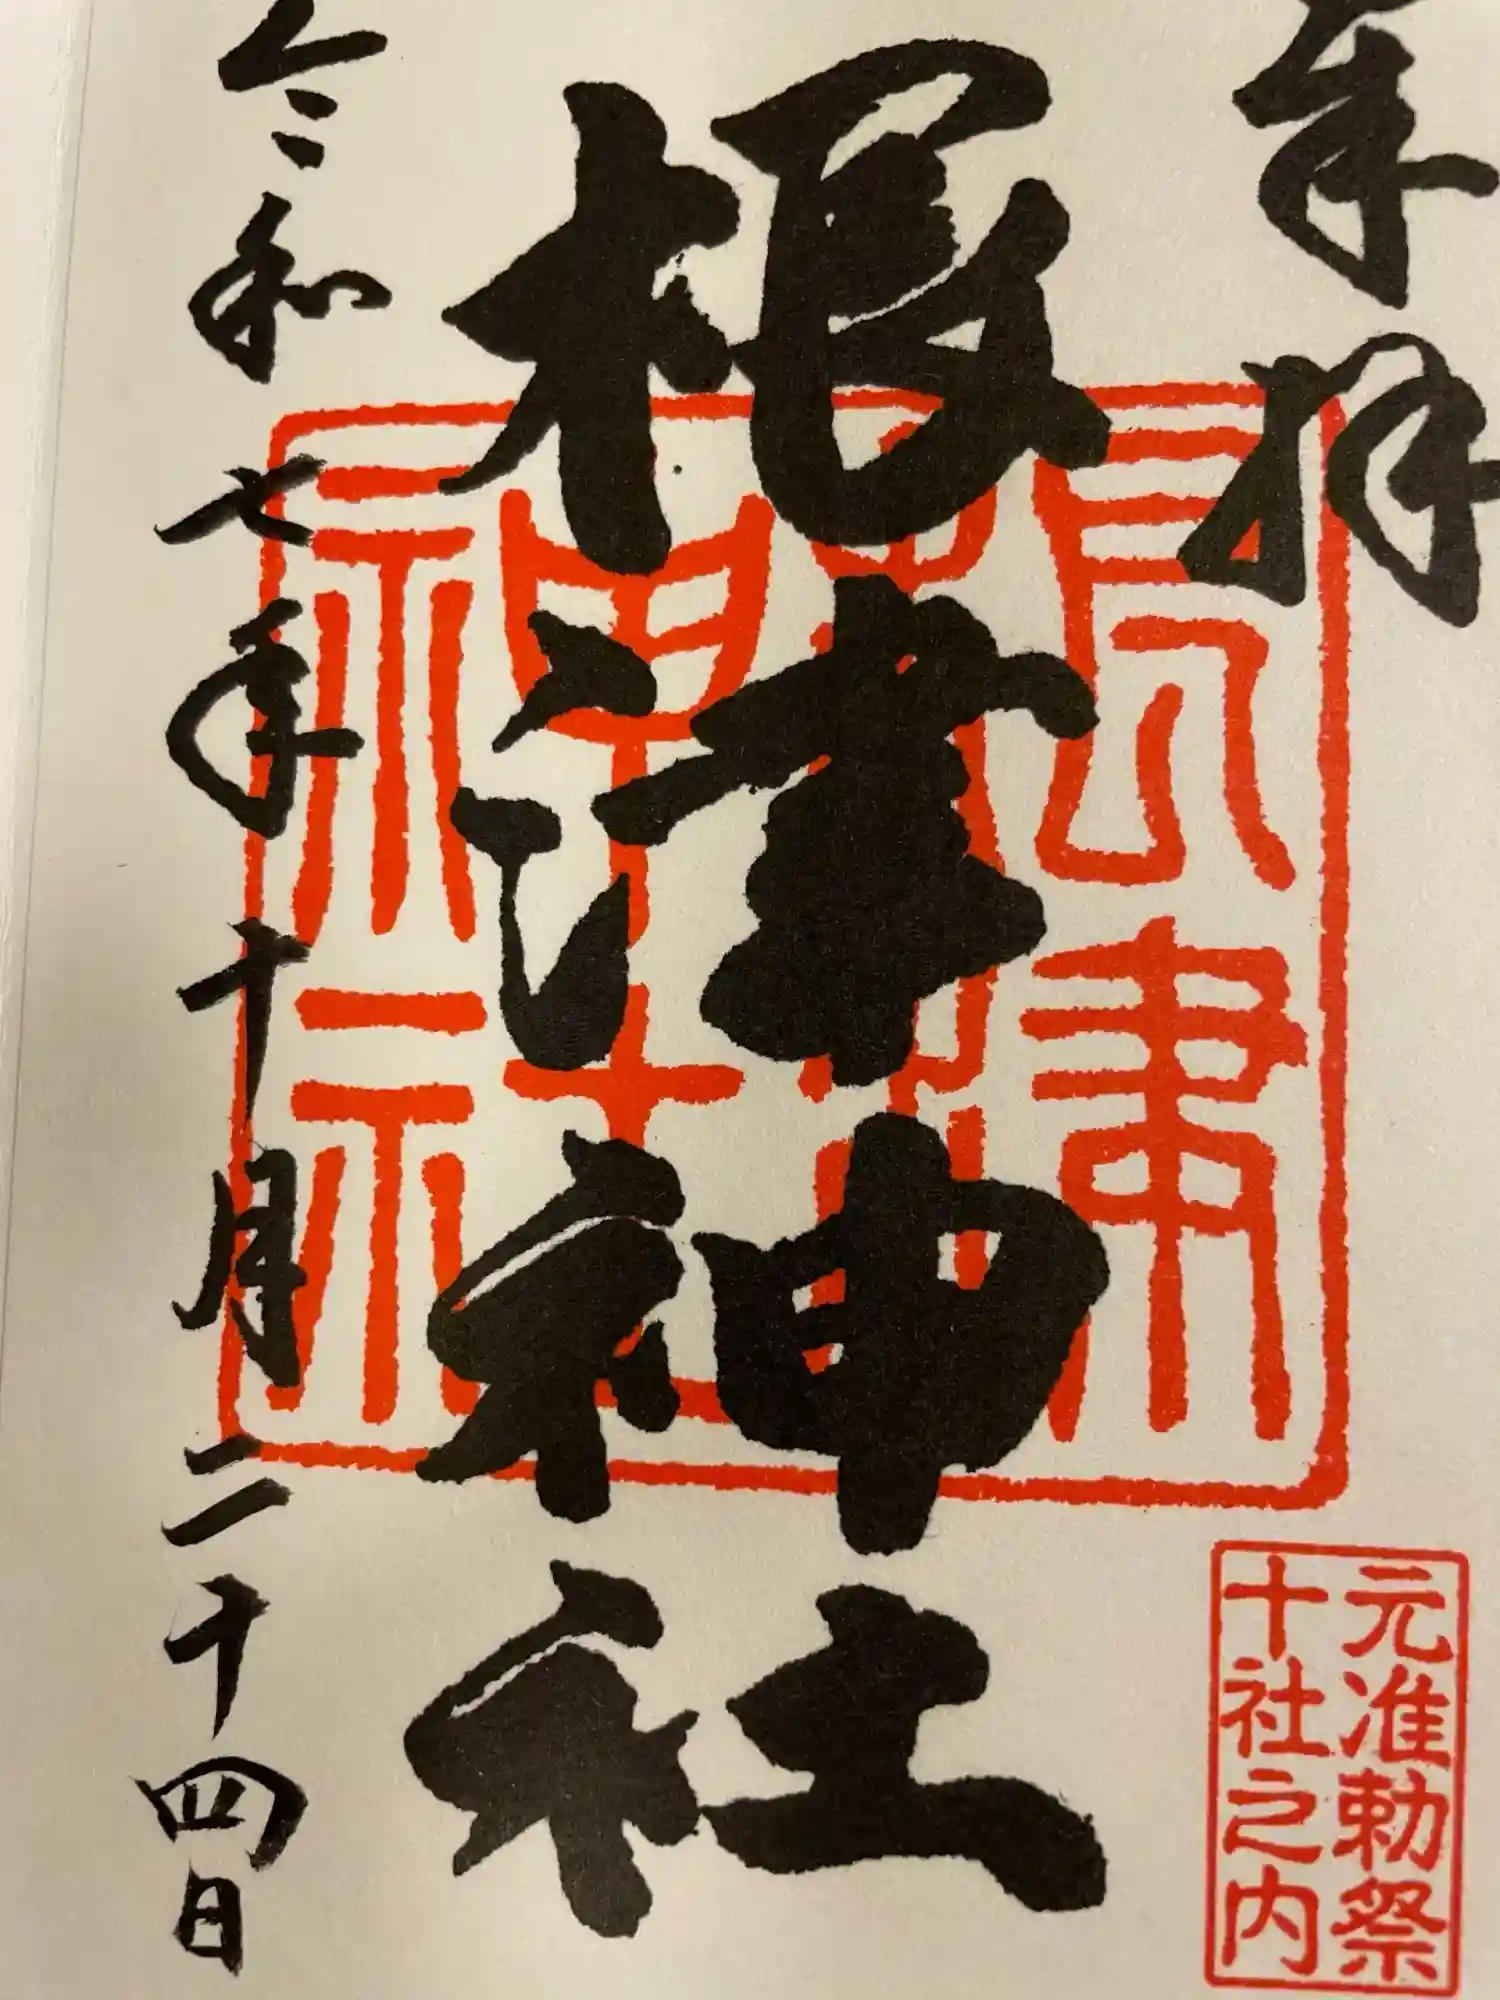 奉拝
根津神社
令和七年十月二十四日
根津神社
元准勅祭
十社之内